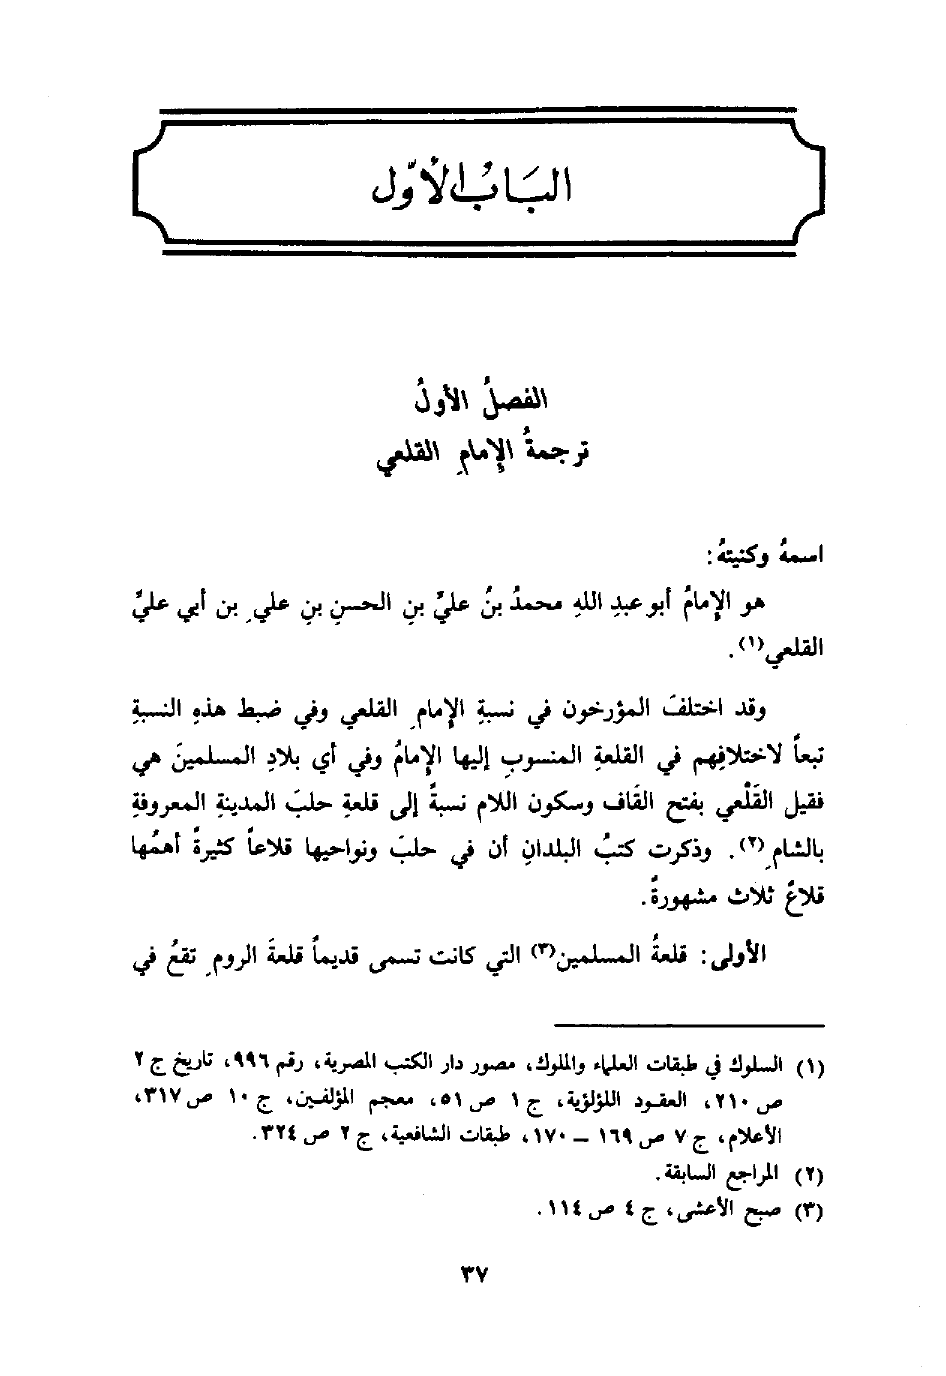 البَابُ الأوّل
الفصلُ الأولُ
ترجمةُ الإِمامِ القلعي
اسمهُ وكنيتهُ:
هو الإِمامُ أبو عبدِ اللهِ محمدُ بنُ عليِّ بنِ الحسنِ بنِ علي ِ بن أبي عليٍّ
القلعي(١).
وقد اختلفَ المؤرخون في نسبةِ الإِمام ِ القلعي وفي ضبط هذهِ النسبةِ
تبعاً لاختلافِهم في القلعةِ المنسوبِ إليها الإِمامُ وفي أي بلادِ المسلمينَ هي
فقيل القَلْعي بفتح القَاف وسكون اللام نسبةً إلى قلعةِ حلبَ المدينةِ المعروفةِ
بالشام ِ(٢). وذكرت كتبُ البلدانِ أن في حلبَ ونواحيها قلاعاً كثيرةً أهمُها
قلاعٌ ثلاث مشهورةٌ.
الأولى: قلعةُ المسلمين(٣) التي كانت تسمى قديماً قلعةَ الروم ِ تقعُ في
(١) السلوك في طبقات العلماء والملوك، مصور دار الكتب المصرية، رقم ٩٩٦، تاريخ ج ٢
ص ٢١٠، العقـود اللؤلؤية، ج ١ ص ٥١، معجم المؤلفـين، ج ١٠ ص ٣١٧،
الأعلام، ج ٧ ص ١٦٩ ــ ١٧٠، طبقات الشافعية، ج ٢ ص ٣٢٤.
(٢) المراجع السابقة.
(٣) صبح الأعشى، ج ٤ ص ١١٤.
٣٧